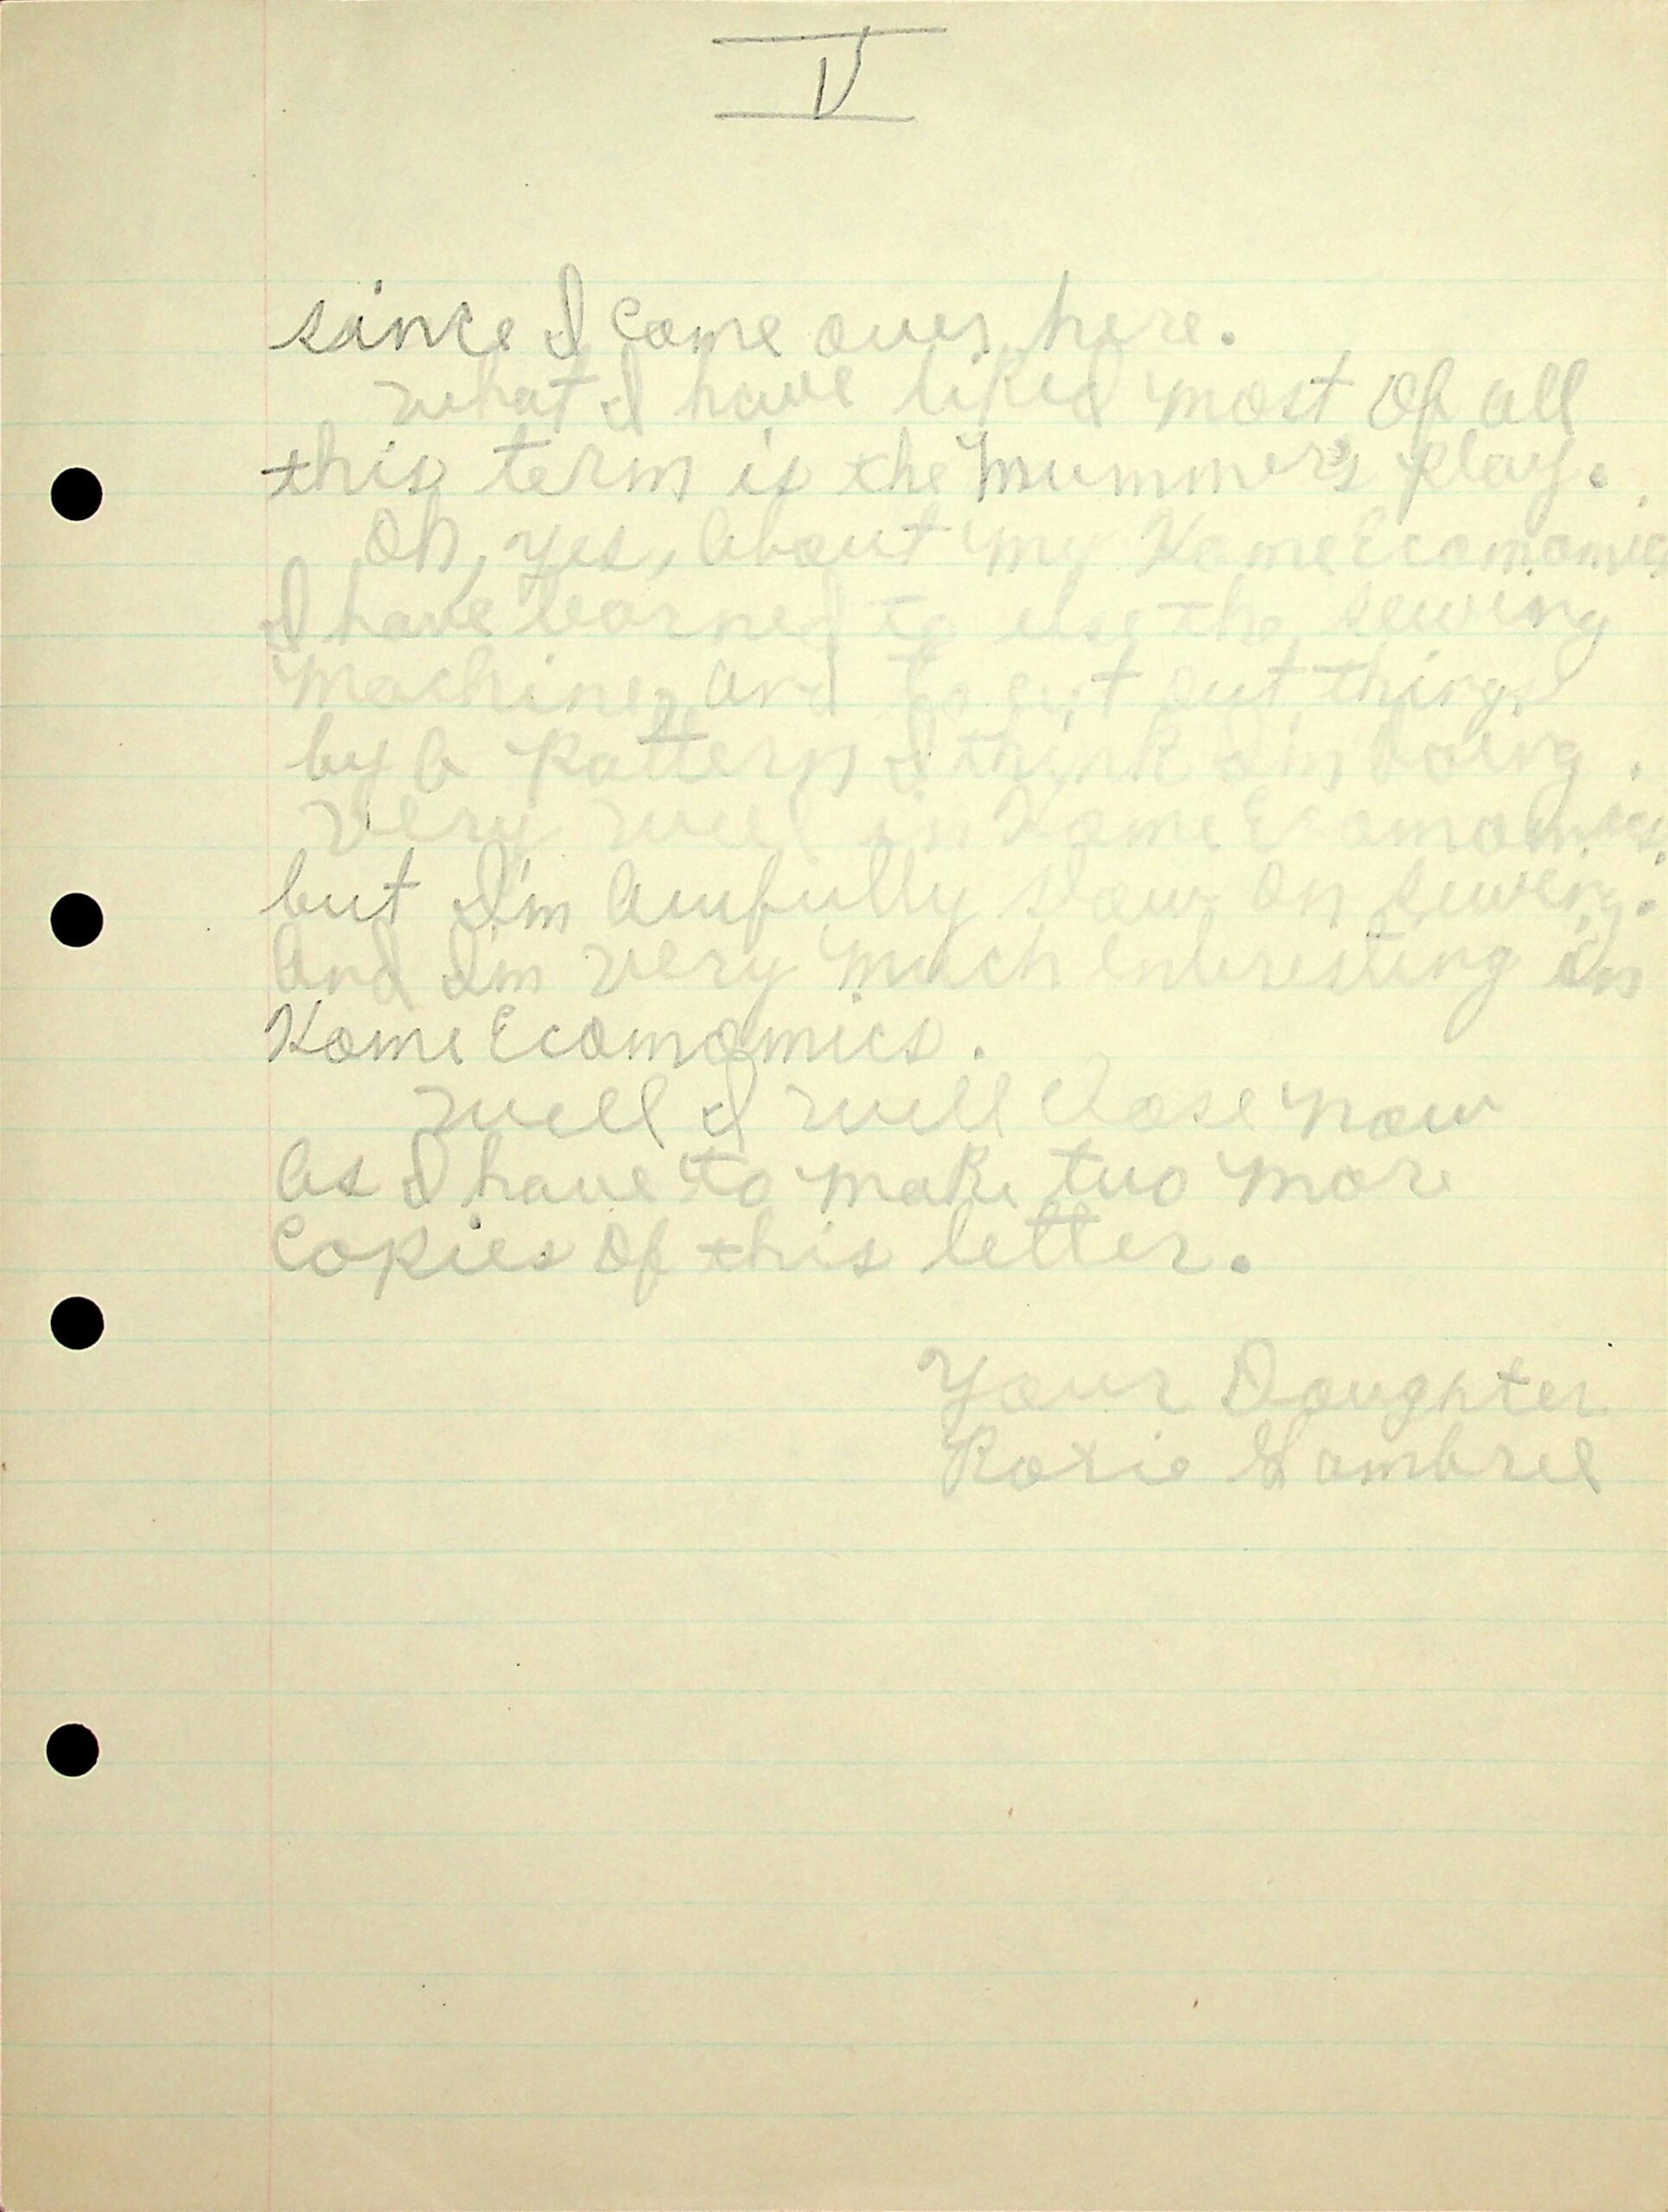 V
since I come over here.
what I have liked most of all
this term is the Mummer's play.
Oh, yes, about my Home Ecomomics
I have learned to use the sewing
machine, and to cut out things
by a pattern I think I'm doing
very well in Home Ecomomics.
but I'm awfully slow on sewing.
and I'm very much enteresting in
Home Ecomomics.
well I will close now
as I have to make two more
copies of this letter.
Your Daughter
Roxie Gambrel